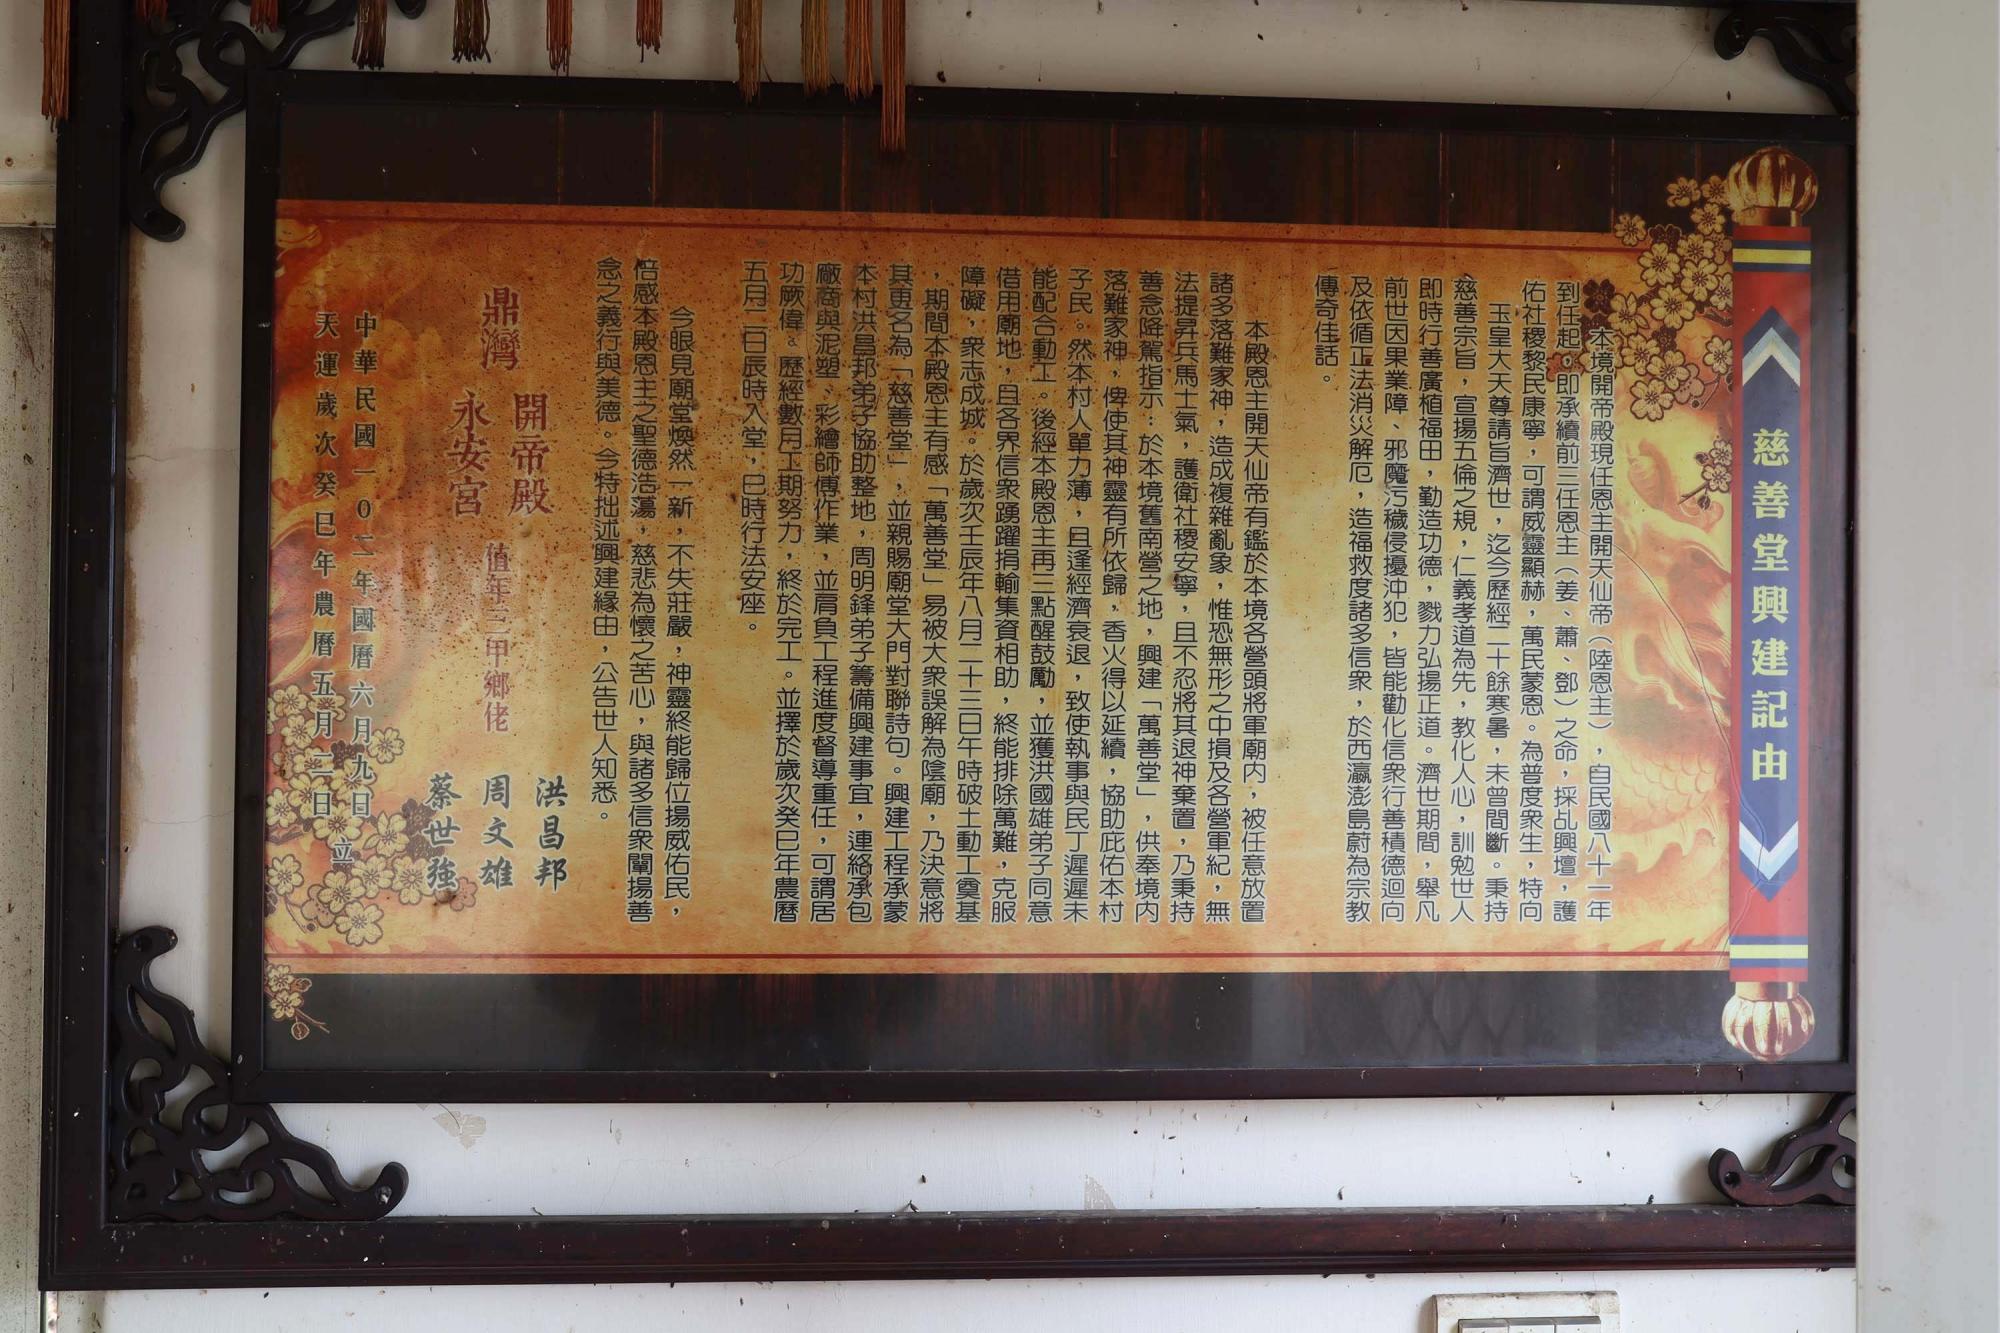 慈善堂興建記由
本境開帝殿現任恩主開天仙帝（陸恩主），自民國八十一年
到任起，即承續前三任恩主（姜、蕭、鄧）之命，採乩興壇，護
佑社稷黎民康寧，可謂威靈顯赫，萬民蒙恩。為普度衆生，特向
玉皇大天尊請旨濟世，迄今歷經二十餘寒暑，未曾間斷。秉持
慈善宗旨，宣揚五倫之規，仁義孝道為先，教化人心，訓勉世人
即時行善廣植福田，勤造功德，戮力弘揚正道。濟世期間，舉凡
前世因果業障、邪魔污穢侵擾沖犯，皆能勸化信衆行善積德迴向
及依循正法消災解厄，造福救度諸多信衆，於西瀛澎島蔚為宗教
傳奇佳話。
本殿恩主開天仙帝有鑑於本境各營頭將軍廟内，被任意放置
諸多落難家神，造成複雜亂象，惟恐無形之中損及各營軍紀，無
法提昇兵馬士氣，護衛社稷安寧，且不忍將其退神棄置，乃秉持
善念降駕指示：於本境舊南營之地，興建「萬善堂」，供奉境内
落難家神，俾使其神靈有所依歸，香火得以延續，協助庇佑本村
子民。然本村人單力薄，且逢經濟衰退，致使執事與民丁遲遲未
能配合動工。後經本殿恩主再三點醒鼓勵，並獲洪國雄弟子同意
借用廟地，且各界信衆踴躍捐輸集資相助，終能排除萬難，克服
障礙，衆志成城。於歲次壬辰年八月二十三日午時破土動工奠基
，期間本殿恩主有感「萬善堂」易被大衆誤解為陰廟，乃決意將
其更名為「慈善堂」，並親賜廟堂大門對聯詩句。興建工程承蒙
本村洪昌邦弟子協助整地，周明鋒弟子籌備興建事宜，連絡承包
廠商與泥塑、彩繪師傅作業，並肩負工程進度督導重任，可謂居
功厥偉。歷經數月工期努力，終於完工。並擇於歲次癸巳年農曆
五月二日辰時入堂，巳時行法安座。
今眼見廟堂煥然一新，不失莊嚴，神靈終能歸位揚威佑民，
倍感本殿恩主之聖德浩蕩，慈悲為懷之苦心，與諸多信衆闡揚善
念之義行與美德。今特拙述興建緣由，公告世人知悉。
鼎灣 開帝殿 永安宮 值年三甲鄉佬 洪昌邦 周文雄 蔡世強
中華民國一0二年國曆六月九日
天運歲次癸巳年農曆五月二日 立